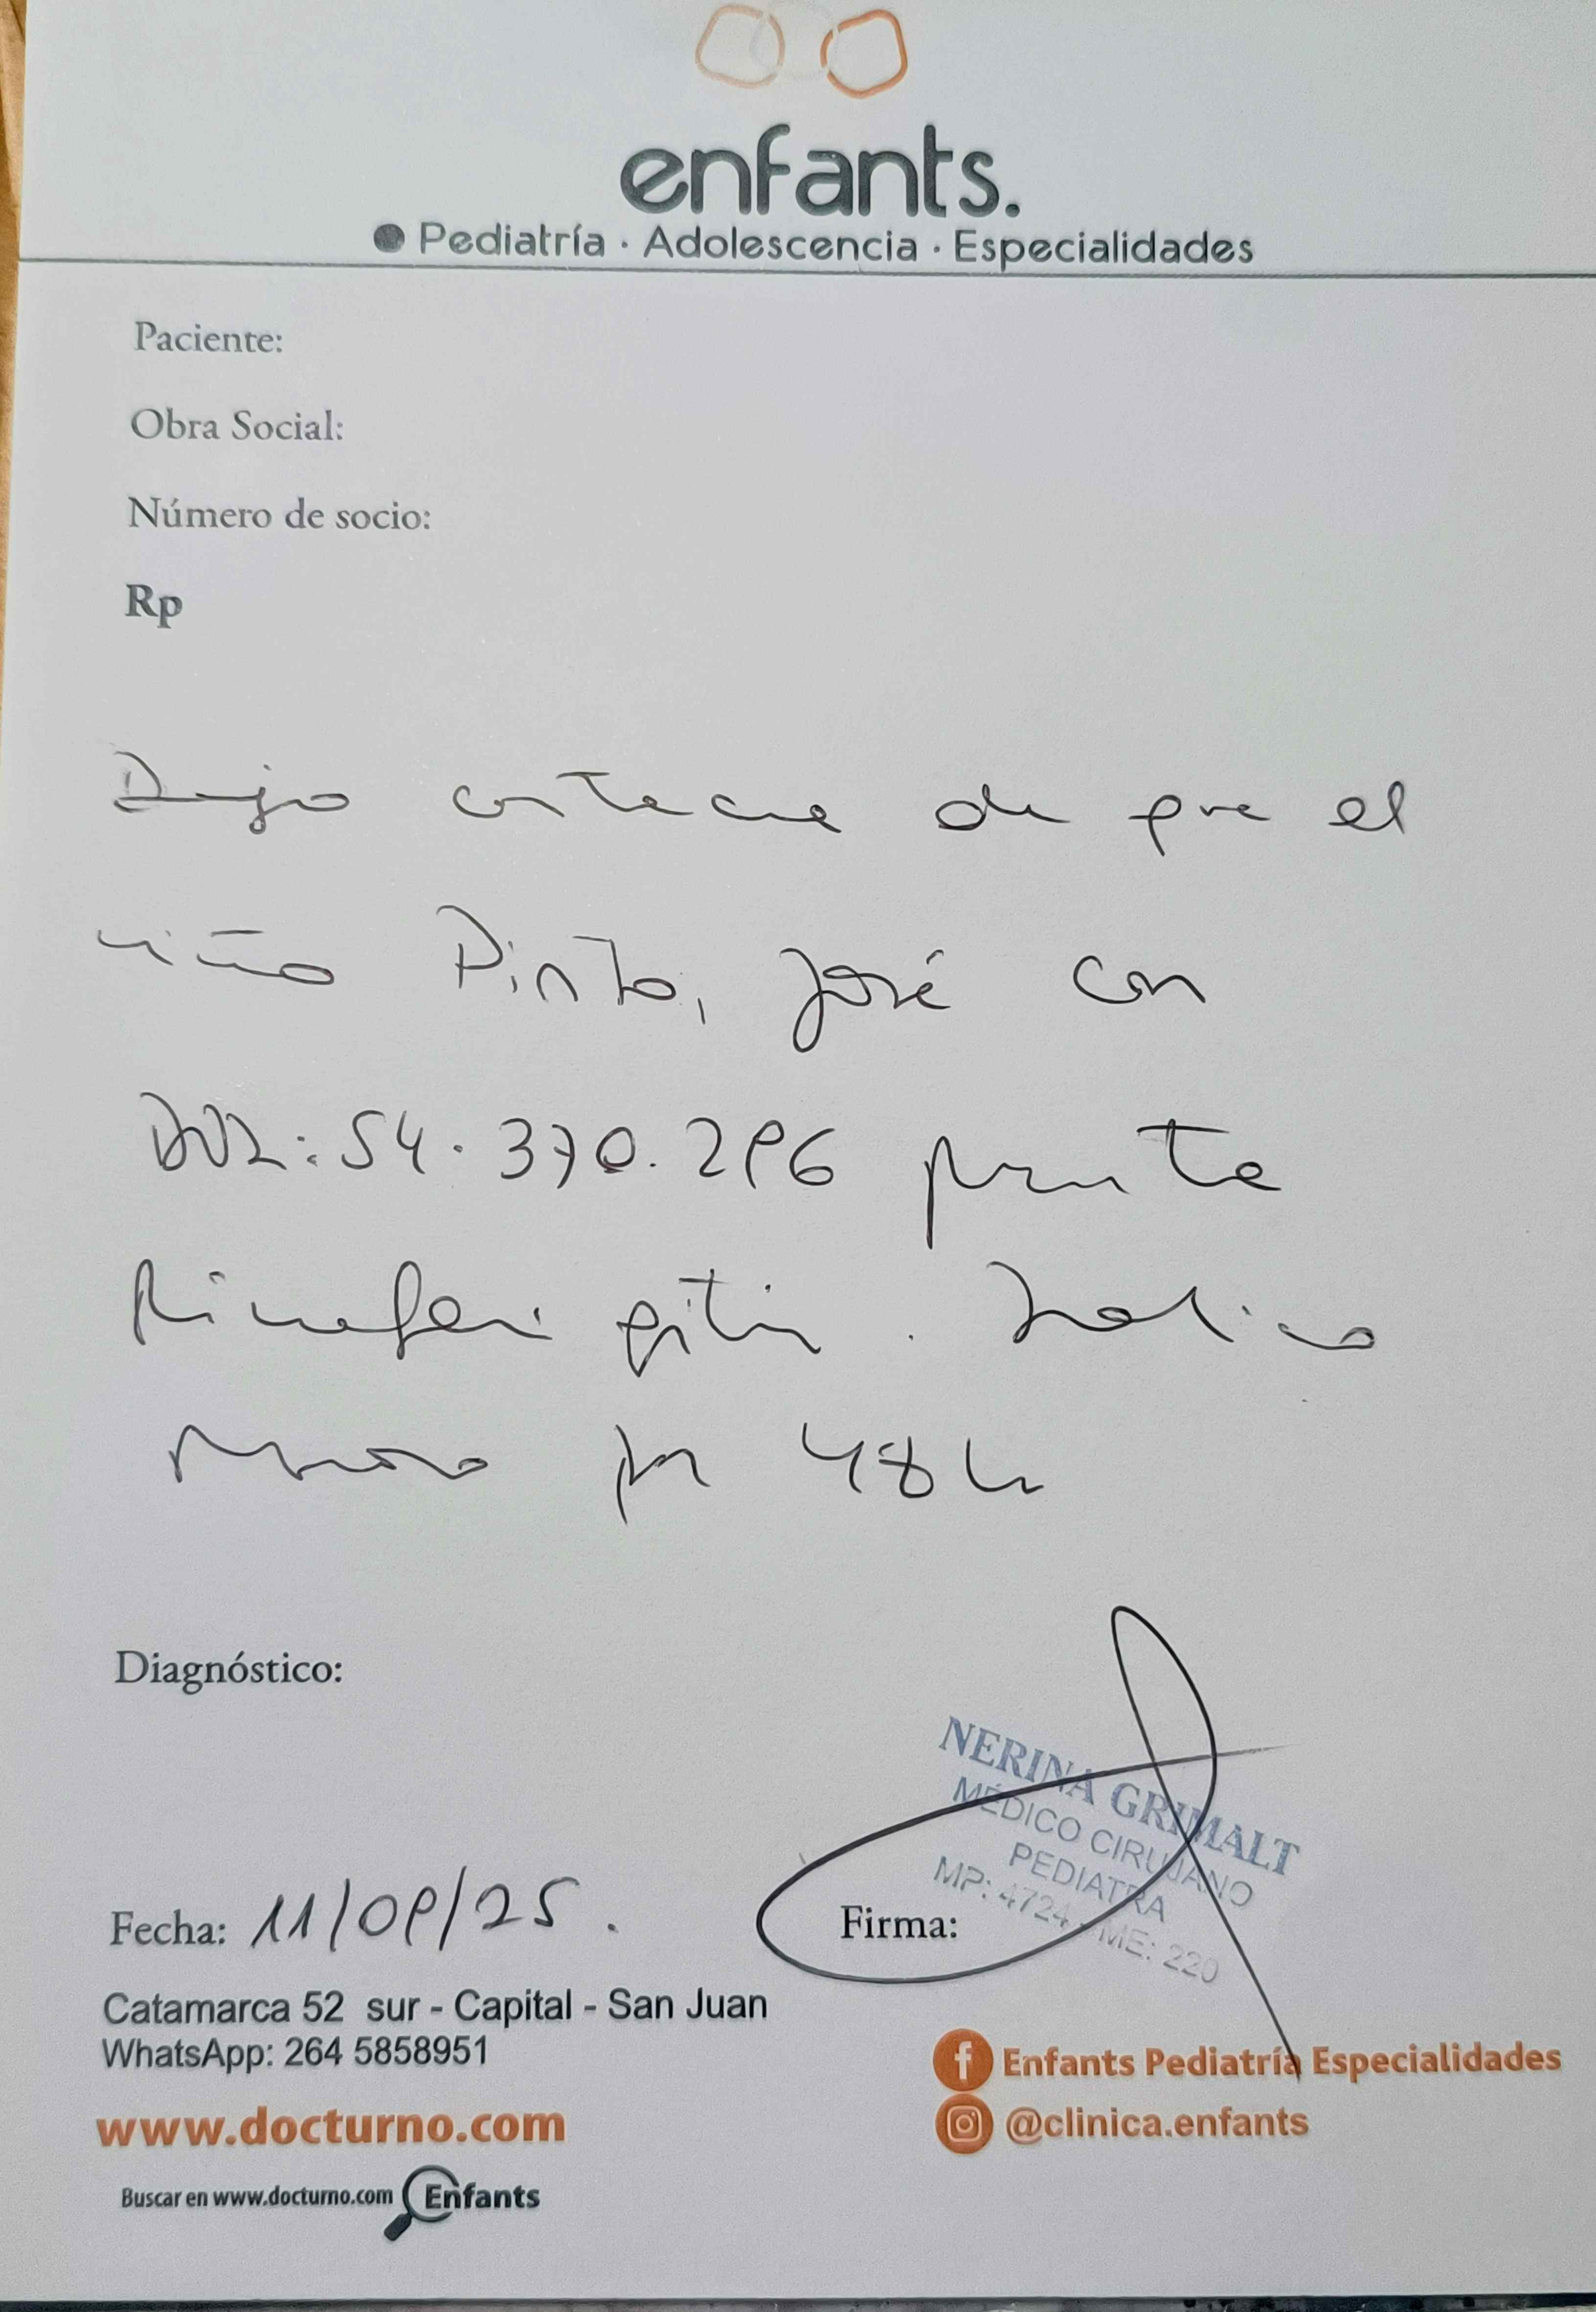 enfants.
Pediatría · Adolescencia · Especialidades
Paciente:
Obra Social:
Número de socio:
Rp
Dejo constancia de que el
niño Pinto, José con
DNI: 54.370.296 presenta
Rinofaringitis. Indico
reposo por 48 h
Diagnóstico:
NERINA GRIMALT
MÉDICO CIRUJANO
PEDIATRA
MP: 4724 - ME: 220
Fecha: 11/09/25.
Firma:
Catamarca 52 sur - Capital - San Juan
WhatsApp: 264 5858951
www.docturno.com
Buscar en www.docturno.com Enfants
Enfants Pediatría Especialidades
@clinica.enfants